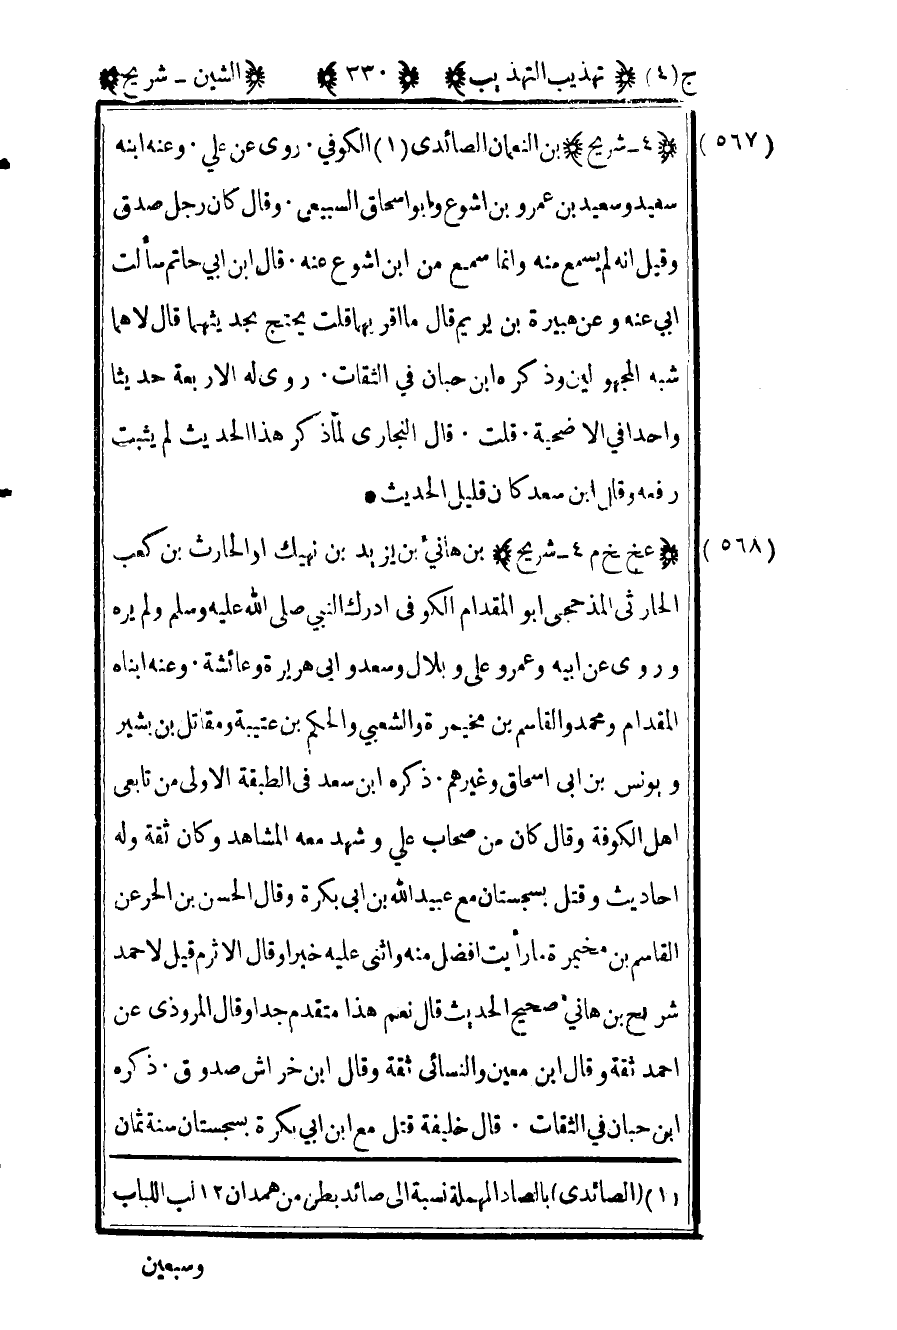 ج (٤) ﴿ تهذيب التهذيب ﴾ ﴿ ٣٣٠ ﴾ ﴿ الشين ـ شريح ﴾
(٥٦٧) ﴿ ٤ ـ شريح ﴾ بن النعمان الصائدى (١) الكوفي ٠ روى عن علي ٠ وعنه ابنه
سعيد وسعيد بن عمرو بن اشوع وابو اسحاق السبيعي ٠ وقال كان رجل صدق
وقيل انه لم يسمع منه وانما سمع من ابن اشوع عنه ٠ قال ابن ابي حاتم سألت
ابي عنه وعن هبيرة بن يريم قال ما اقربهما قلت يحتج بحديثهما قال لا هما
شبه المجهولين وذكره ابن حبان في الثقات ٠ روى له الاربعة حديثا
واحدا في الاضحية ٠ قلت ٠ قال البخارى لما ذكر هذا الحديث لم يثبت
رفعه وقال ابن سعد كان قليل الحديث •
(٥٦٨) ﴿ عخ بخ م ٤ ـ شريح ﴾ بن هانئ بن يزيد بن نهيك او الحارث بن كعب
الحارثى المذحجى ابو المقدام الكوفى ادرك النبي صلى الله عليه وسلم ولم يره
وروى عن ابيه وعمر وعلي وبلال وسعد وابى هريرة وعائشة ٠ وعنه ابناه
المقدام ومحمد والقاسم بن مخيمرة والشعبي والحكم بن عتيبة ومقاتل بن بشير
ويونس بن ابى اسحاق وغيرهم ٠ ذكره ابن سعد فى الطبقة الاولى من تابعى
اهل الكوفة وقال كان من صحاب علي وشهد معه المشاهد وكان ثقة وله
احاديث وقتل بسجستان مع عبيد الله بن ابى بكرة وقال الحسن بن الحر عن
القاسم بن مخيمرة ما رأيت افضل منه واثنى عليه خيرا وقال الاثرم قيل لاحمد
شريح بن هانئ صحيح الحديث قال نعم هذا متقدم جدا وقال المروذى عن
احمد ثقة وقال ابن معين والنسائى ثقة وقال ابن خراش صدوق ٠ ذكره
ابن حبان في الثقات ٠ قال خليفة قتل مع ابن ابي بكرة بسجستان سنة ثمان
(١) (الصائدى) بالصاد المهملة نسبة الى صائد بطن من همدان ١٢ لب اللباب
وسبعين